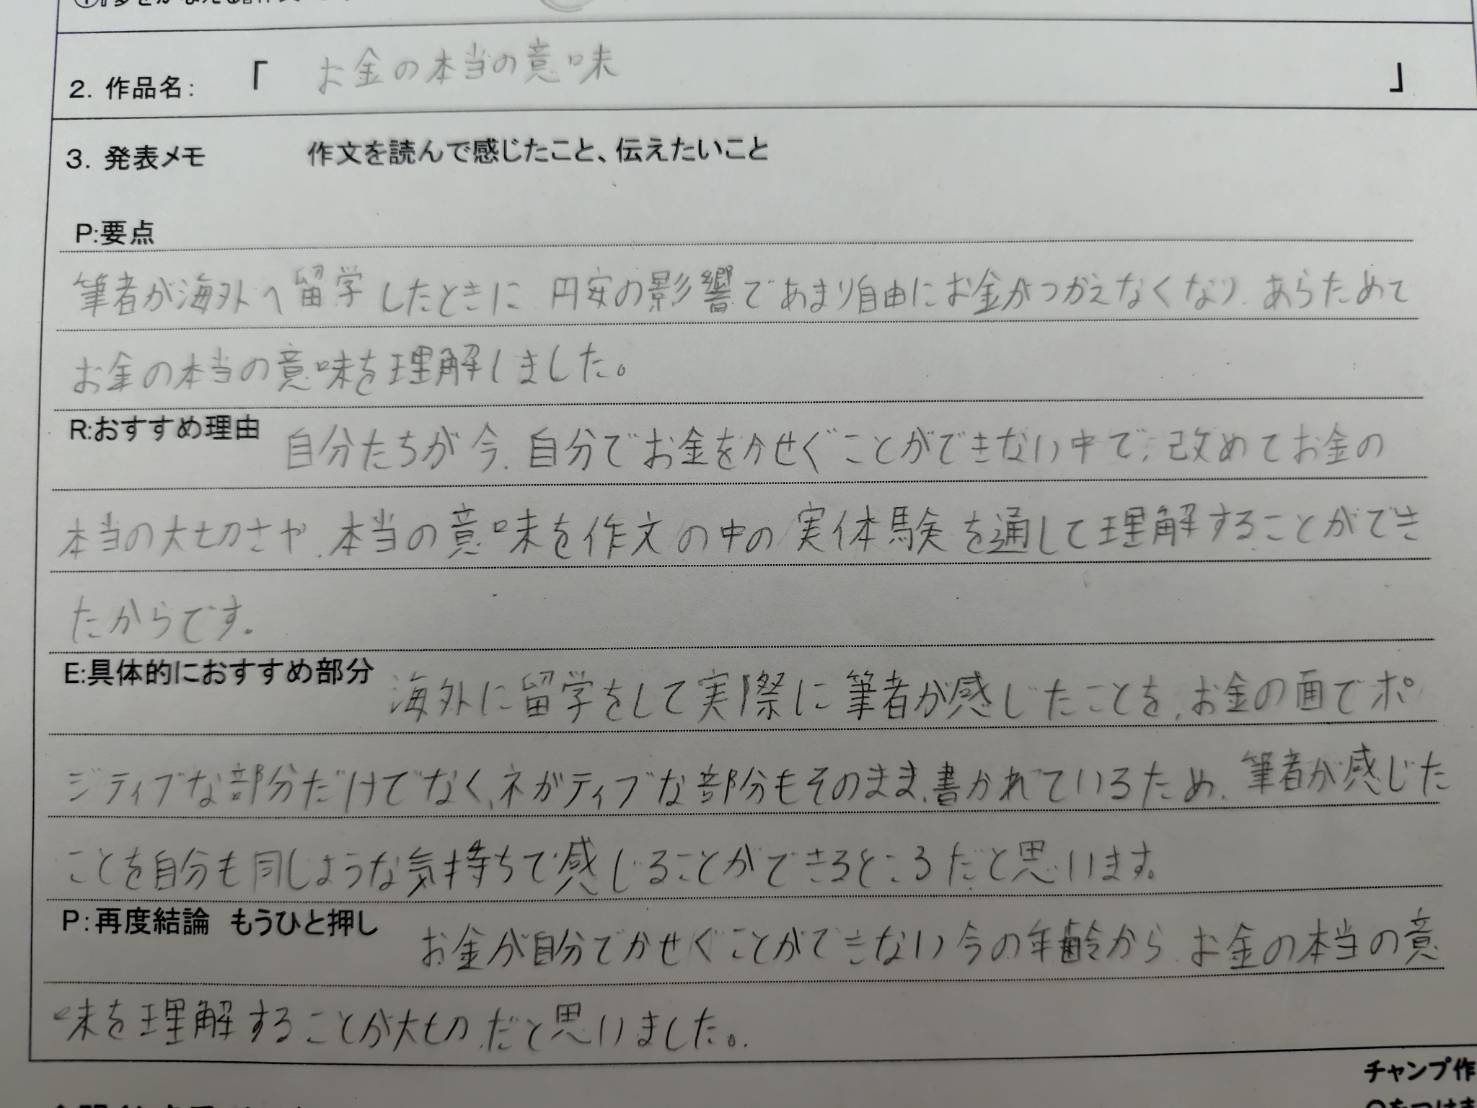 2. 作品名: 「 お金の本当の意味 」
3. 発表メモ 作文を読んで感じたこと、伝えたいこと
P:要点
筆者が海外へ留学したときに、円安の影響であまり自由にお金がつかえなくなり、あらためて
お金の本当の意味を理解しました。
R:おすすめ理由 自分たちが今、自分でお金をかせぐことができない中で、改めてお金の
本当の大切さや、本当の意味を作文の中の実体験を通して理解することができ
たからです。
E:具体的におすすめ部分 海外に留学をして実際に筆者が感じたことを、お金の面でポ
ジティブな部分だけでなく、ネガティブな部分もそのまま、書かれているため、筆者が感じた
ことを自分も同じような気持ちで感じることができるところだと思います。
P:再度結論 もうひと押し お金が自分でかせぐことができない今の年齢から、お金の本当の意
味を理解することが大切だと思いました。
チャンプ作